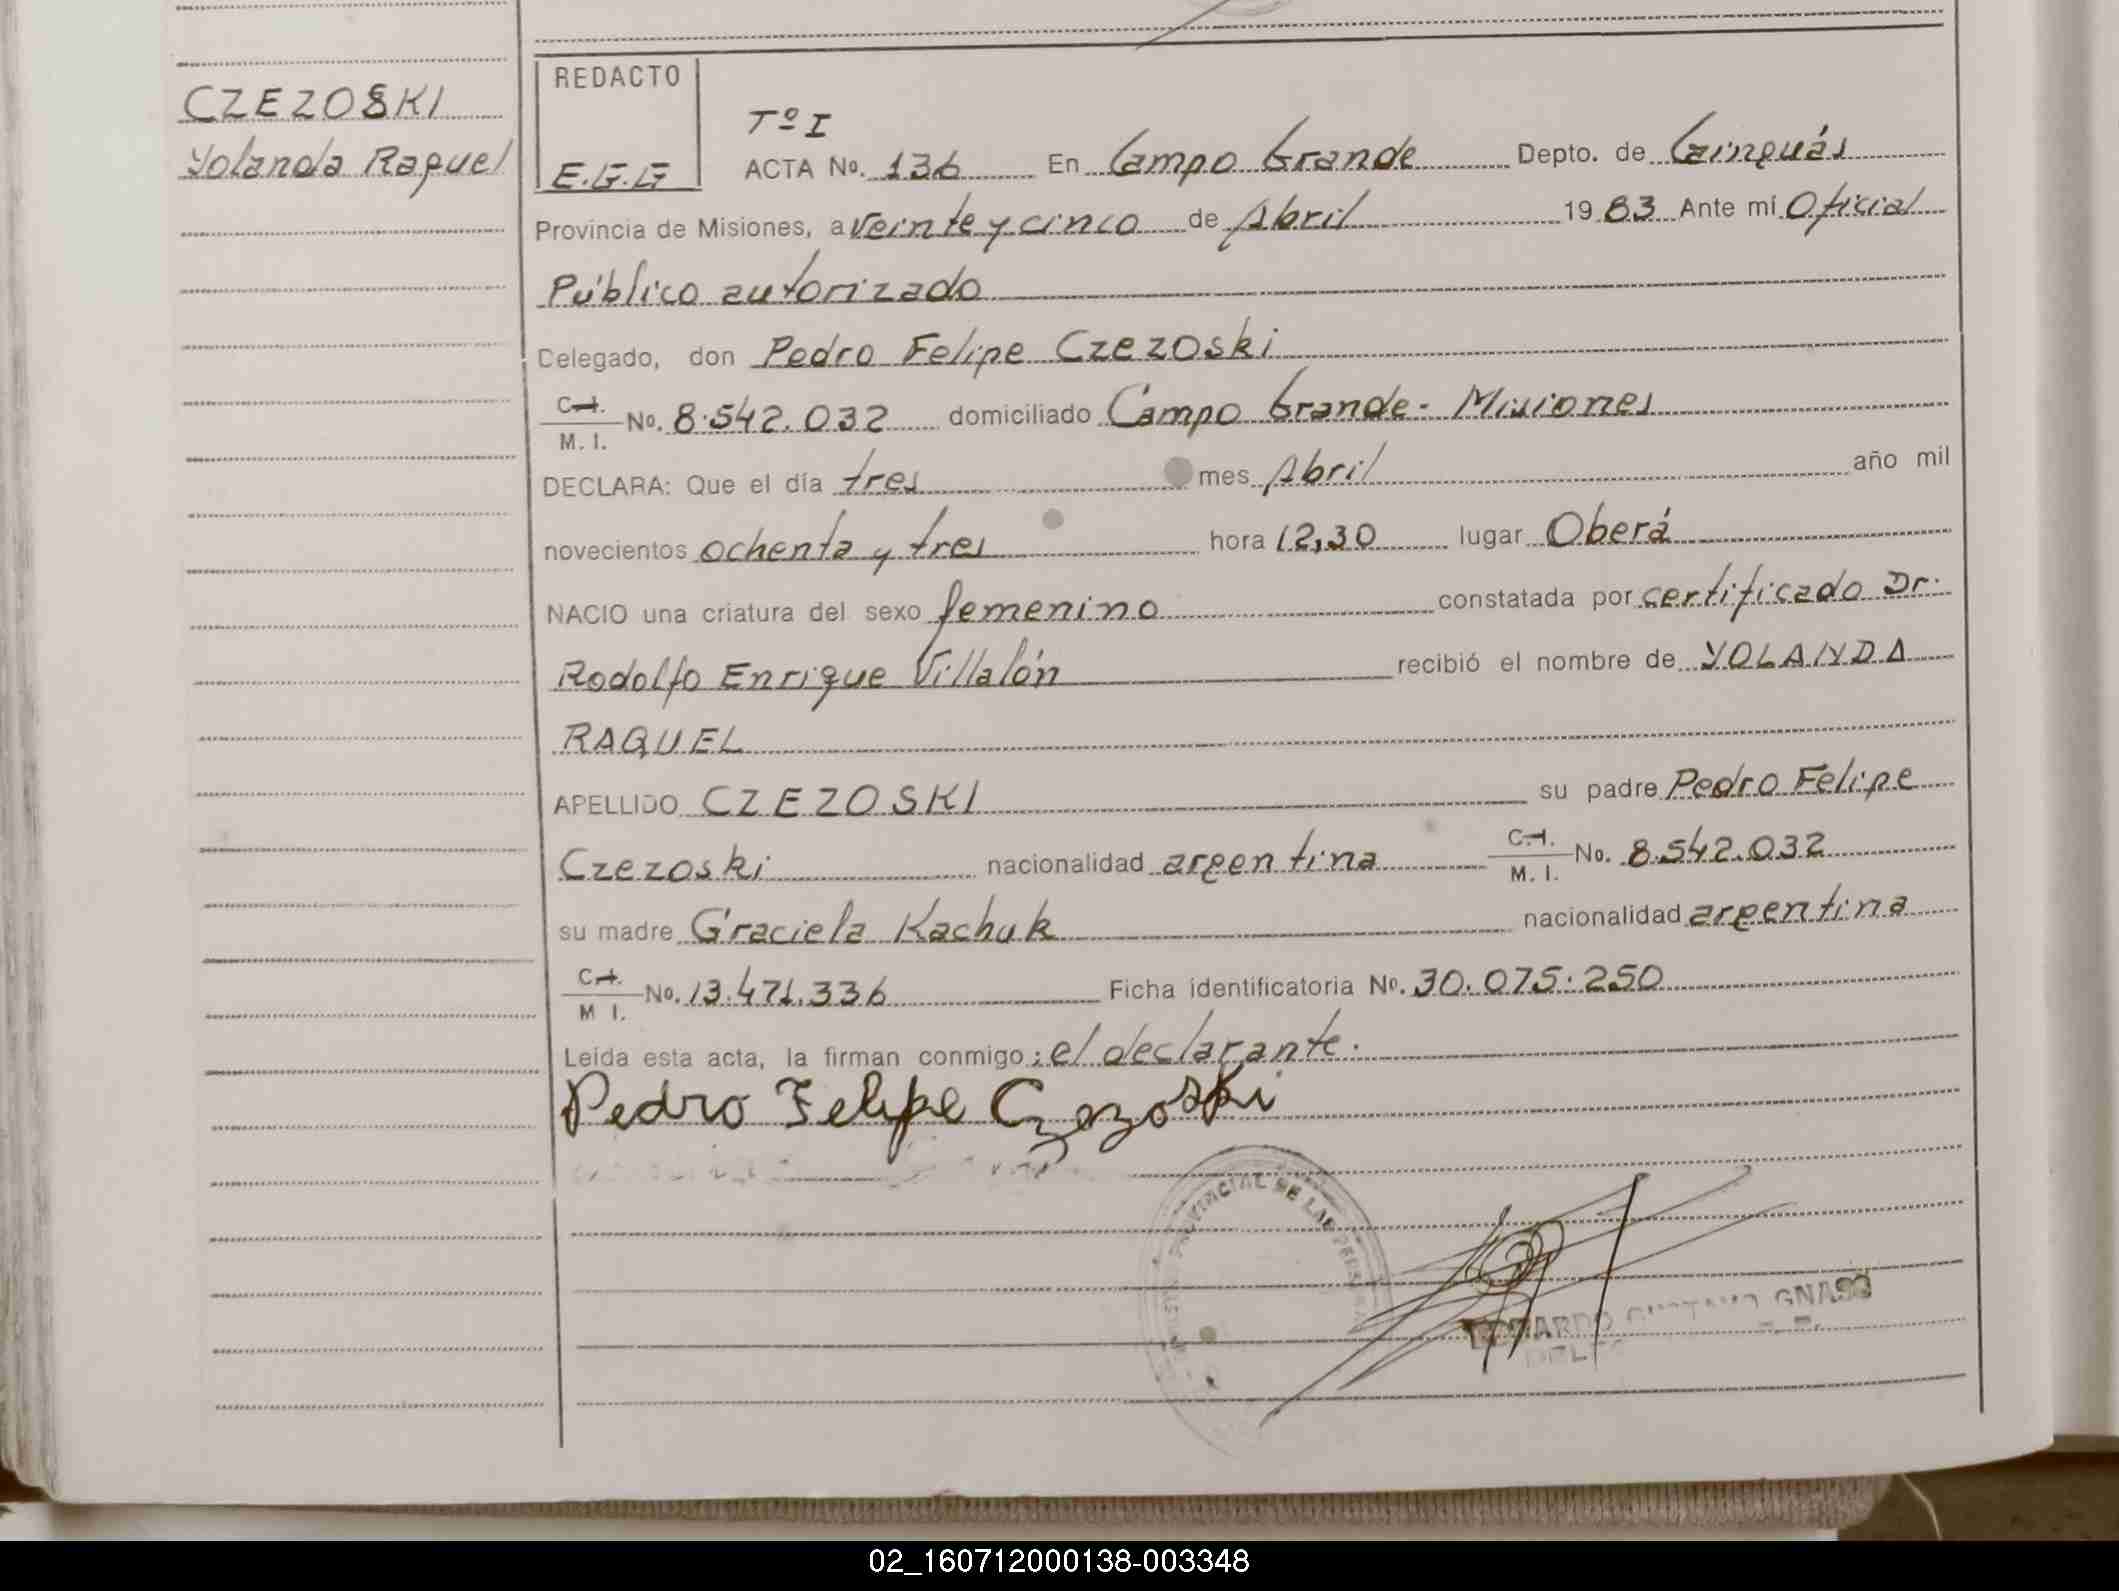 CZEZOSKI
Yolanda Raquel
REDACTO
E.G.G
Tº I
ACTA No. 136 En Campo Grande Depto. de Cainguás
Provincia de Misiones, a veinte y cinco de Abril 19 83 Ante mí Oficial
Público autorizado
Celegado, don Pedro Felipe Czezoski
C.I. M. I. No. 8.542.032 domiciliado Campo Grande - Misiones
DECLARA: Que el día tres mes Abril año mil
novecientos ochenta y tres hora 12,30 lugar Oberá
NACIO una criatura del sexo femenino constatada por certificado Dr.
Rodolfo Enrique Villalón recibió el nombre de YOLANDA
RAQUEL
APELLIDO CZEZOSKI su padre Pedro Felipe
Czezoski nacionalidad argentina C.I. M. I. No. 8.542.032
su madre Graciela Kachuk nacionalidad argentina
C.I. M I. No. 13.471.336 Ficha identificatoria No. 30.075.250
Leída esta acta, la firman conmigo: el declarante.
Pedro Felipe Czezoski
PROVINCIAL DE LAS
02_160712000138-003348